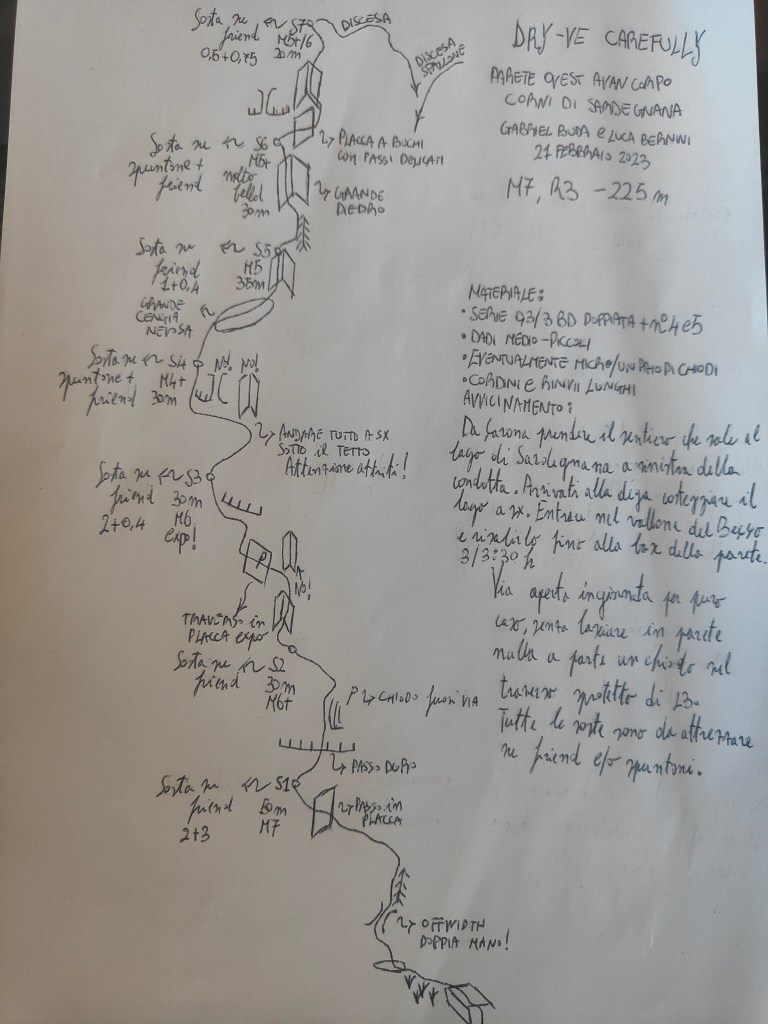 DRY-VE CAREFULLY
PARETE OVEST AVANCORPO
CORNI DI SARDEGNANA
GABRIEL BUDA e LUCA BERNINI
21 FEBBRAIO 2023
M7, R3 - 225 m
DISCESA
DISCESA
SPALLONE
Sosta su
friend
0,5+0,75
S7
M5+/6
20m
PLACCA A BUCHI
CON PASSI DELICATI
Sosta su
spuntone +
friend
S6
M5+
molto
bello!
30m
GRANDE
DIEDRO
Sosta su
friend
1+0,4
S5
M5
35m
GRANDE
CENGIA
NEVOSA
Sosta su
spuntone +
friend
S4
M4+
30m
NO!
NO!
ANDARE TUTTO A SX
SOTTO il TETTO
Attenzione attriti!
Sosta su
friend
2+0,4
S3
30m
M6
expo!
P
NO!
TRAVERSO in
PLACCA EXPO
Sosta su
friend
S2
30m
M6+
P
CHIODO fuori VIA
PASSO DURO
Sosta su
friend
2+3
S1
50m
M7
PASSO in
PLACCA
OFFWIDTH
DOPPIA MANO!
MATERIALE:
• SERIE 0,3/3 BD DOPPIATA + n°4 e 5
• DADI MEDIO-PICCOLI
• EVENTUALMENTE MICRO/UN PAIO DI CHIODI
• CORDINI E RINVII LUNGHI
AVVICINAMENTO:
Da Carona prendere il sentiero che sale al
lago di Sardegnana a sinistra della
condotta. Arrivati alla diga costeggiare il
lago a sx. Entrare nel vallone del
e risalirlo fino alla base della parete.
3/3:30 h
Via aperta ingiornata per puro
caso, senza lasciare in parete
nulla a parte un chiodo nel
traverso protetto di L3.
Tutte le soste sono da attrezzare
su friend e/o spuntoni.